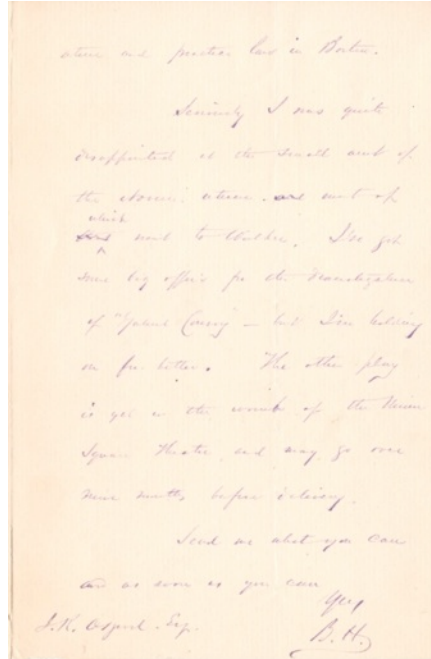 and practice law in Boston.
Seriously I was quite
disappointed at the small amt of
the most of
which
went to Mother. I've got
some big offers for the dramatization
of "Gabriel Conroy" – but I'm holding
on for better. The other play
is yet in the womb of the Union
Square Theatre and may go over
nine months before delivery.
Send me what you can
and as soon as you can
Yrs,
B. H.
J. R. Osgood. Esq.